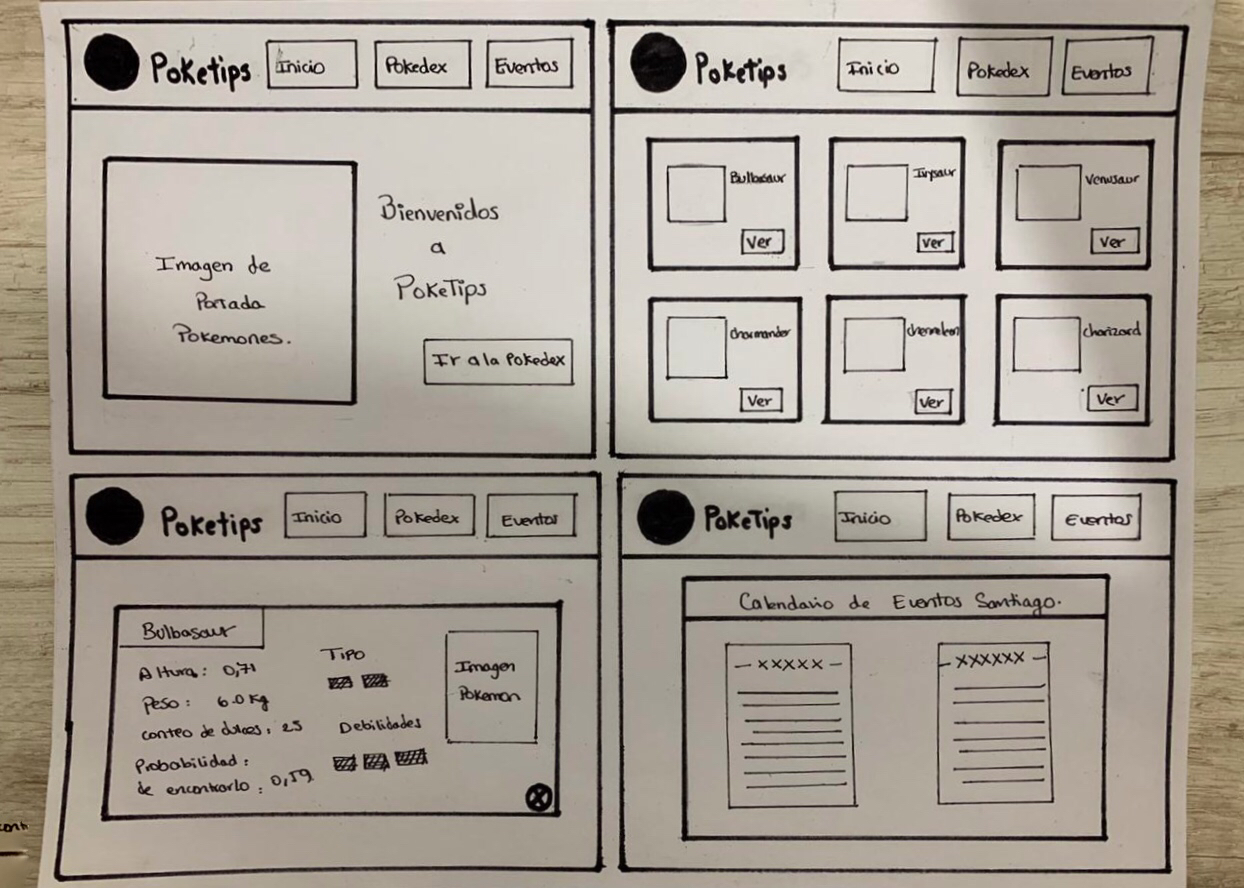 Poketips Inicio Pokedex Eventos
Imagen de
Portada
Pokemones.
Bienvenidos
a
PokeTips
Ir a la Pokedex
PokeTips Inicio Pokedex Eventos
Bulbasaur
Ver
Ver
Venusaur
Ver
Charmander
Ver
Ver
Charizard
Ver
Poketips Inicio Pokedex Eventos
Bulbasaur
Altura: 0,71
Peso: 6.0 Kg
conteo de dulces: 25
Probabilidad:
de encontrarlo: 0,59
Tipo
Debilidades
Imagen
Pokemon
X
PokeTips Inicio Pokedex Eventos
Calendario de Eventos Santiago.
- XXXXX -
- XXXXXX -